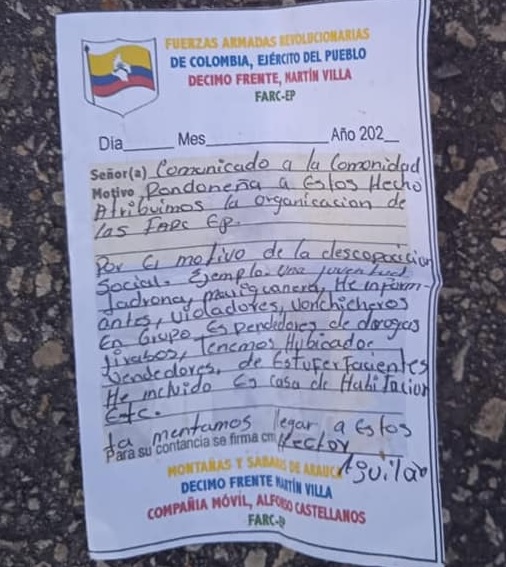 FUERZAS ARMADAS REVOLUCIONARIAS
DE COLOMBIA, EJÉRCITO DEL PUEBLO
DECIMO FRENTE, MARTÍN VILLA
FARC-EP
Dia Mes Año 202
Señor(a) Comunicado a la Comonidad
Motivo Rondoneña a Estos Hecho
Atribuimos la organicacion de
las FARC EP.
Por El motivo de la descoposicion
Social. Ejemplo. una juventud
ladrona, mariguanera, He inform-
antes, violadores, Vonchicheros
En Grupo Espendedores de drogas
tirabos, tenemos Hubicado
Vendedores, de Estuferfacientes
He incluido Es casa de Habitacion
Etc.
La mentamos llegar a Estos
Para su contancia se firma cm Hector
Aguilar
MONTAÑAS Y SABANAS DE ARAUCA
DECIMO FRENTE MARTÍN VILLA
COMPAÑIA MÓVIL, ALFONSO CASTELLANOS
FARC-EP